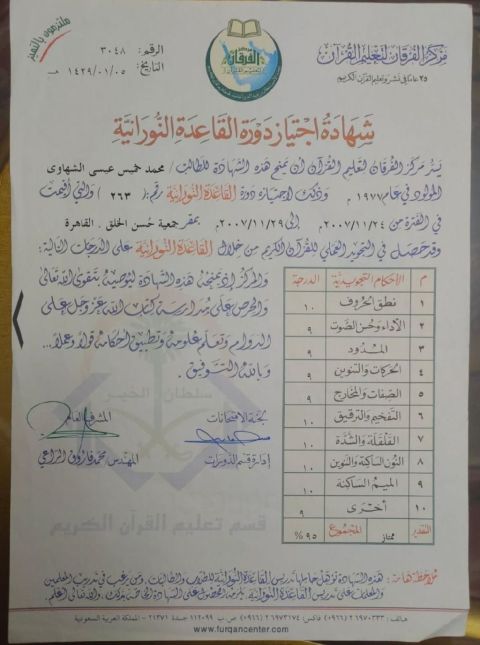 ملتزمون بالتميز
الرقم: ٣٠٤٨
التاريخ: ١٤٢٩/٠١/٠٥ هـ
الفرقان
مركز الفرقان لتعليم القرآن
٢٥ عاماً في نشر وتعليم القرآن الكريم
شهادة اجتياز دورة القاعدة النورانية
يسر مركز الفرقان لتعليم القرآن أن يمنح هذه الشهادة للطالب / محمد خميس عيسى الشهاوى
المولود في عام ١٩٧٧م وذلك لاجتيازه دورة القاعدة النورانية رقم: ( ٢٦٣ ) والتي أقيمت
في الفترة من ٢٠٠٧/١١/٢٤م إلى ٢٠٠٧/١١/٢٩م بمقر جمعية حُسن الخلق . القاهرة
وقد حصل في التجويد العملي للقرآن الكريم من خلال القاعدة النورانية على الدرجات التالية:
م الأحكام التجويدية الدرجة
١ نطق الحروف ١٠
٢ الأداء وحسن الصوت ٩
٣ المدود ٩
٤ الحركات والتنوين ٩
٥ الصفات والمخارج ٩
٦ التفخيم والترقيق ١٠
٧ القلقلة والشدة ١٠
٨ النون الساكنة والتنوين ١٠
٩ الميم الساكنة ١٠
١٠ أخرى ٩
التقدير ممتاز المجموع ٩٥ %
والمركز إذ يمنحه هذه الشهادة ليوصيه بتقوى الله تعالى
والحرص على مدارسة كتاب الله عز وجل على
الدوام وتعلم علومه وتطبيق أحكامه قولاً وعملاً...
وبالله التوفيق .
سلطان الخير
لجنة الامتحانات
إدارة قسم الدورات
المشرف العام
المهندس محمد فاروق الراعي
قسم تعليم القرآن الكريم
ملاحظة هامة: هذه الشهادة تؤهل حاملها تدريس القاعدة النورانية للطلاب والطالبات. ومن يرغب في تدريب المعلمين
والمعلمات على تدريس القاعدة النورانية يلزمه الحصول على الشهادة الخاصة بذلك. والله تعالى أعلم.
هاتف: ٢٦٩٧٠٣٣٣ (٠٩٦٦٢) فاكس: ٢٦٩٧٣١٧٤ (٠٩٦٦٢) ص ب ١١٢٠٩٩ جدة ٢١٣٧١ - المملكة العربية السعودية
www.furqancenter.com